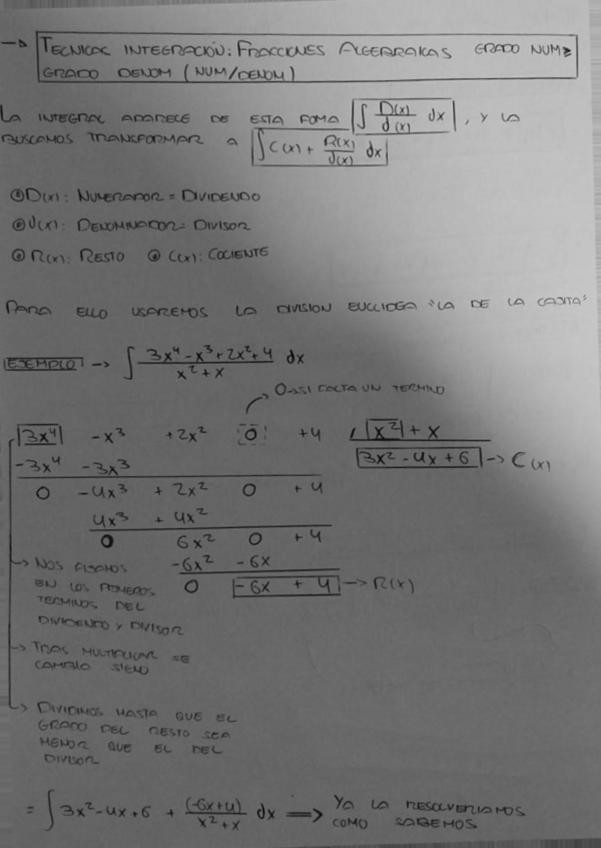 → TECNICAS INTEGRACIÓN: FRACCIONES ALGEBRAICAS GRADO NUM ≥
GRADO DENOM (NUM/DENOM)
LA INTEGRAL APARECE DE ESTA FOMA ∫ D(x)/d(x) dx, Y LA
BUSCAMOS TRANSFORMAR A ∫ C(x) + R(x)/d(x) dx
D(x): NUMERADOR = DIVIDENDO
d(x): DENOMINADOR = DIVISOR
R(x): RESTO C(x): COCIENTE
PARA ELLO USAREMOS LA DIVISION EUCLIDEA "LA DE LA CAJITA"
EJEMPLO → ∫ (3x⁴ - x³ + 2x² + 4)/(x² + x) dx
0 → SI FALTA UN TERMINO
3x⁴ -x³ +2x² 0 +4 / x² + x
-3x⁴ -3x³ 3x² - 4x + 6 → C(x)
0 -4x³ + 2x² 0 + 4
4x³ + 4x²
0 6x² 0 + 4
-6x² -6x
0 -6x + 4 → R(x)
→ NOS FIJAMOS
EN LOS PRIMEROS
TERMINOS DEL
DIVIDENDO Y DIVISOR
→ TRAS MULTIPLICAR SE
CAMBIA SIGNO
→ DIVIDIMOS HASTA QUE EL
GRADO DEL RESTO SEA
MENOR QUE EL DEL
DIVISOR
= ∫ 3x² - 4x + 6 + (-6x+4)/(x² + x) dx ⟹ YA LA RESOLVERIAMOS
COMO SABEMOS